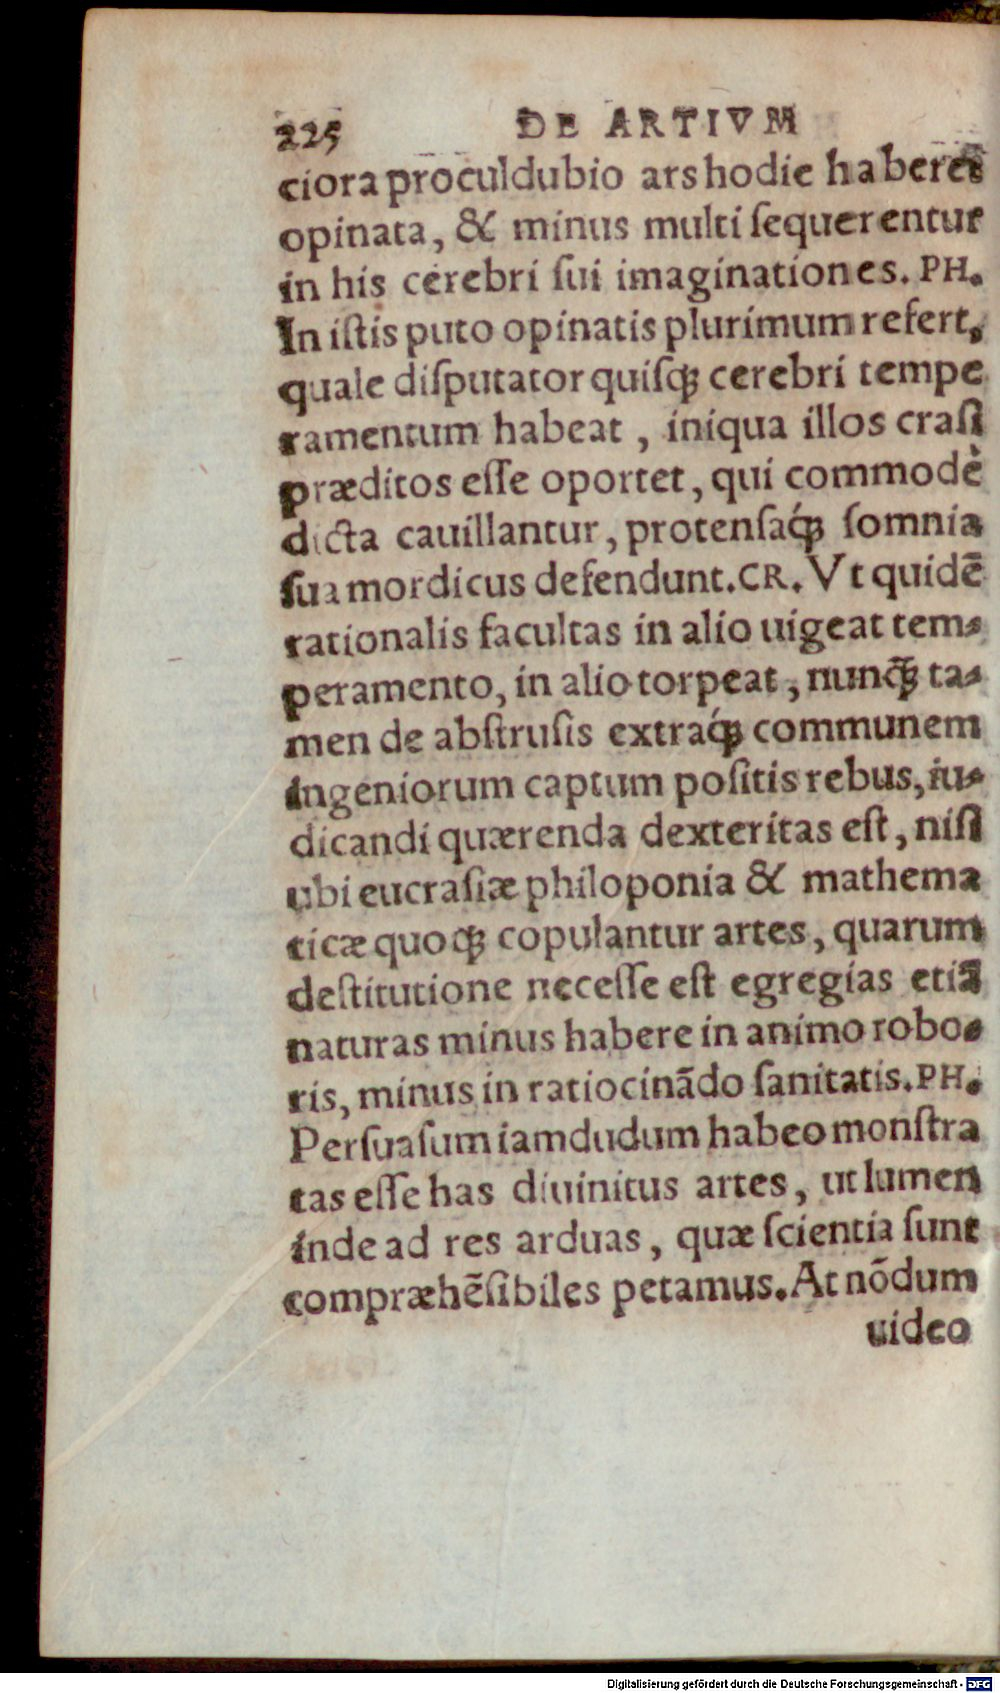 225 DE ARTIVM
ciora proculdubio ars hodie haberet
opinata, & minus multi ſequerentur
in his cerebri ſui imaginationes. PH.
In iſtis puto opinatis plurimum refert,
quale diſputator quiſqꝫ cerebri tempe
ramentum habeat, iniqua illos craſi
præditos eſſe oportet, qui commodè
dicta cauillantur, protenſaqꝫ́ ſomnia
ſua mordicus defendunt. CR. Vt quidē
rationalis facultas in alio uigeat tem-
peramento, in alio torpeat, nunqꝫ̃ ta-
men de abſtruſis extraqꝫ́ communem
ingeniorum captum poſitis rebus, iu-
dicandi quærenda dexteritas eſt, niſi
ubi eucraſiæ philoponia & mathema
ticæ quoqꝫ copulantur artes, quarum
deſtitutione neceſſe eſt egregias etiā
naturas minus habere in animo robo-
ris, minus in ratiocinādo ſanitatis. PH.
Perſuaſum iamdudum habeo monſtra
tas eſſe has diuinitus artes, ut lumen
inde ad res arduas, quæ ſcientia ſunt
compræhēſibiles petamus. At nōdum
uideo
Digitalisierung gefördert durch die Deutsche Forschungsgemeinschaft - DFG